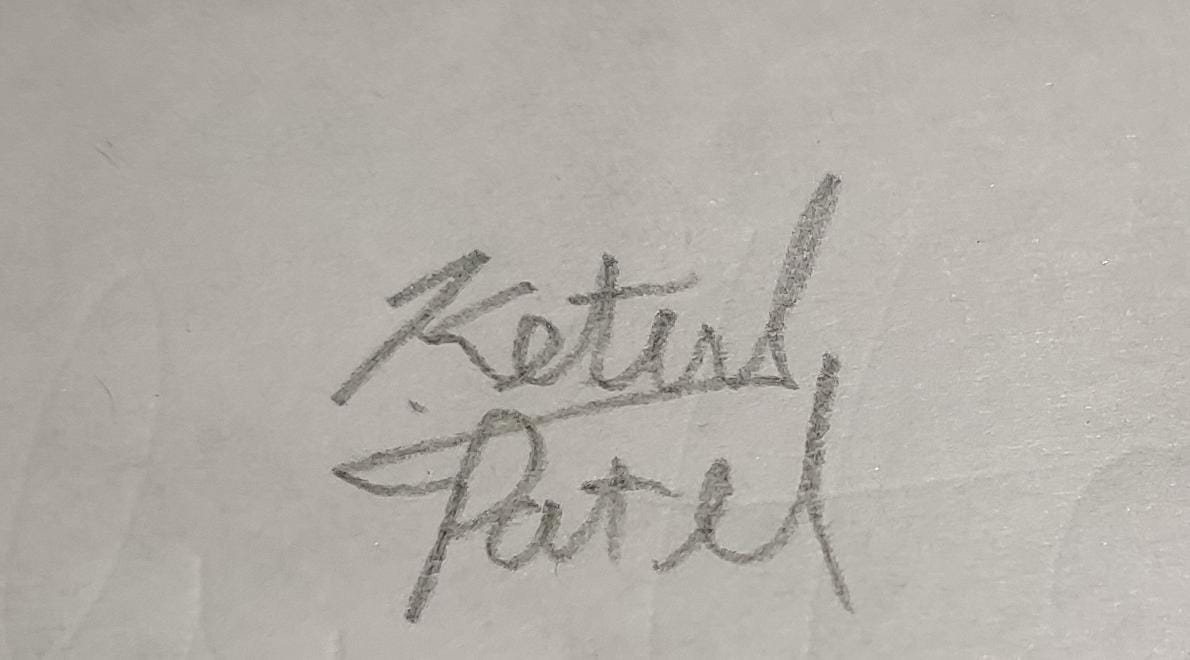 Ketul
Patel